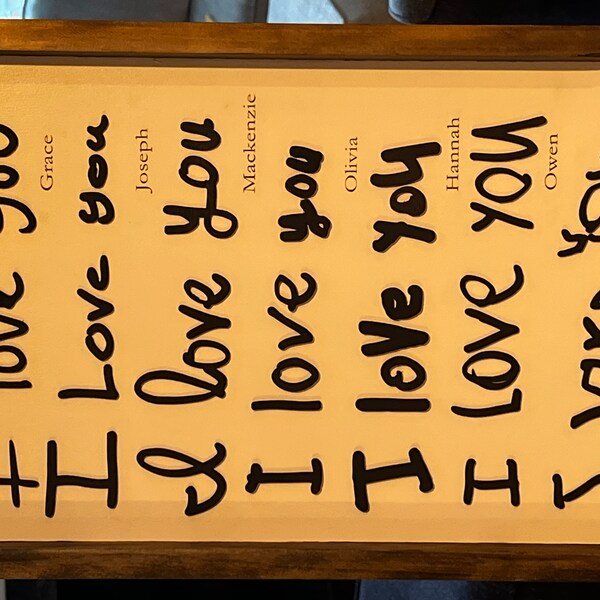 I love you
Grace
I Love you
Joseph
I love you
Mackenzie
I love you
Olivia
I love you
Hannah
I Love YOU
Owen